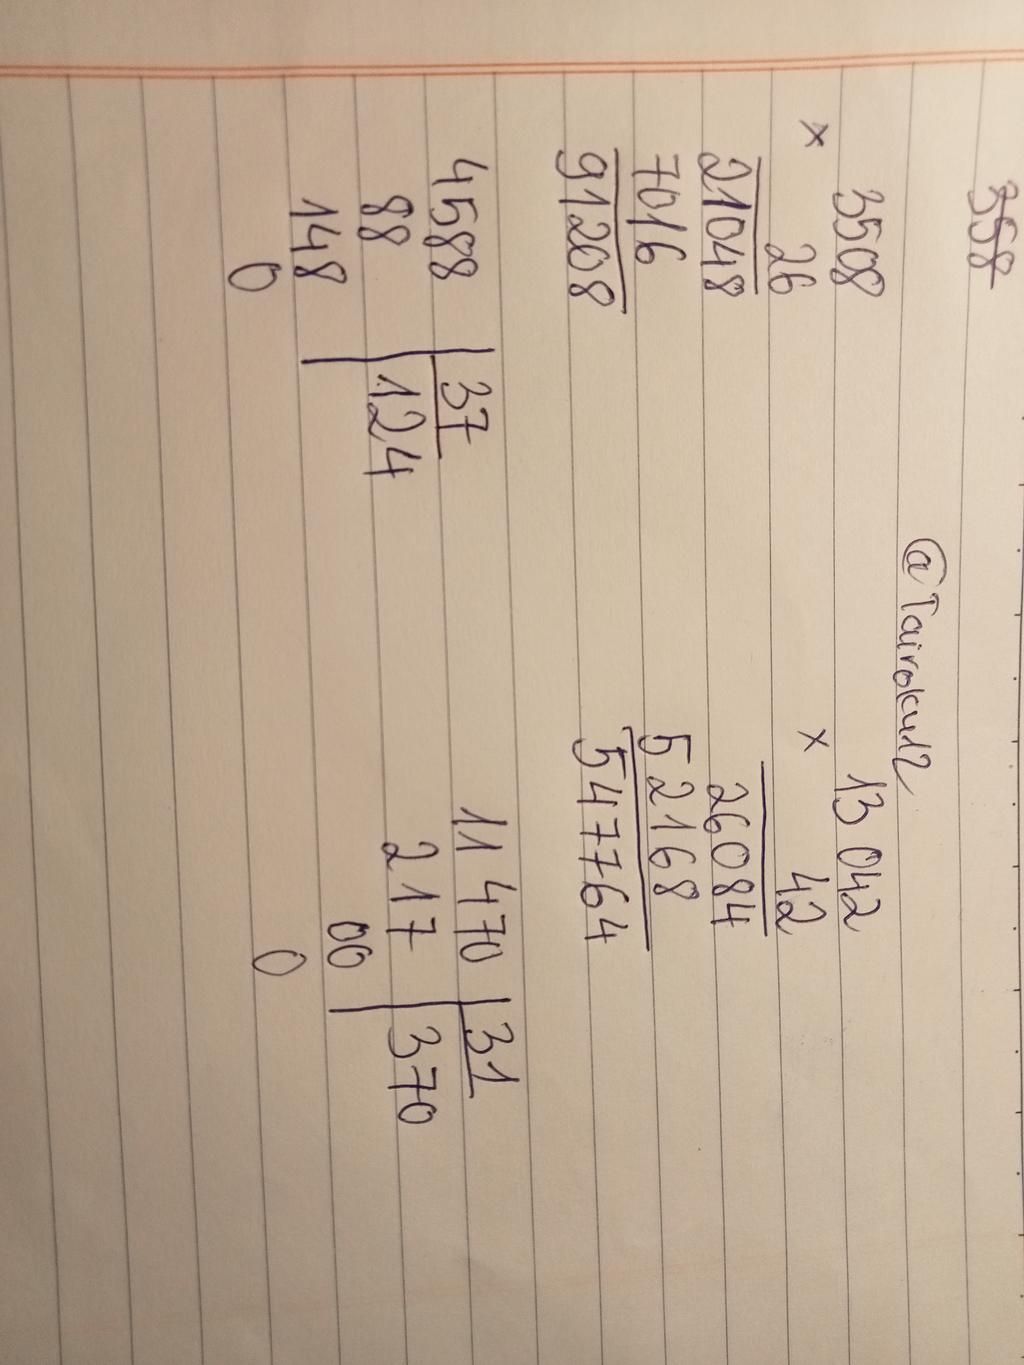 358
@Tairoku12
× 3508
26
21048
7016
91208
× 13 042
42
26084
52168
547764
4588 | 37
88 | 124
148
0
11 470 | 31
217 | 370
00
0